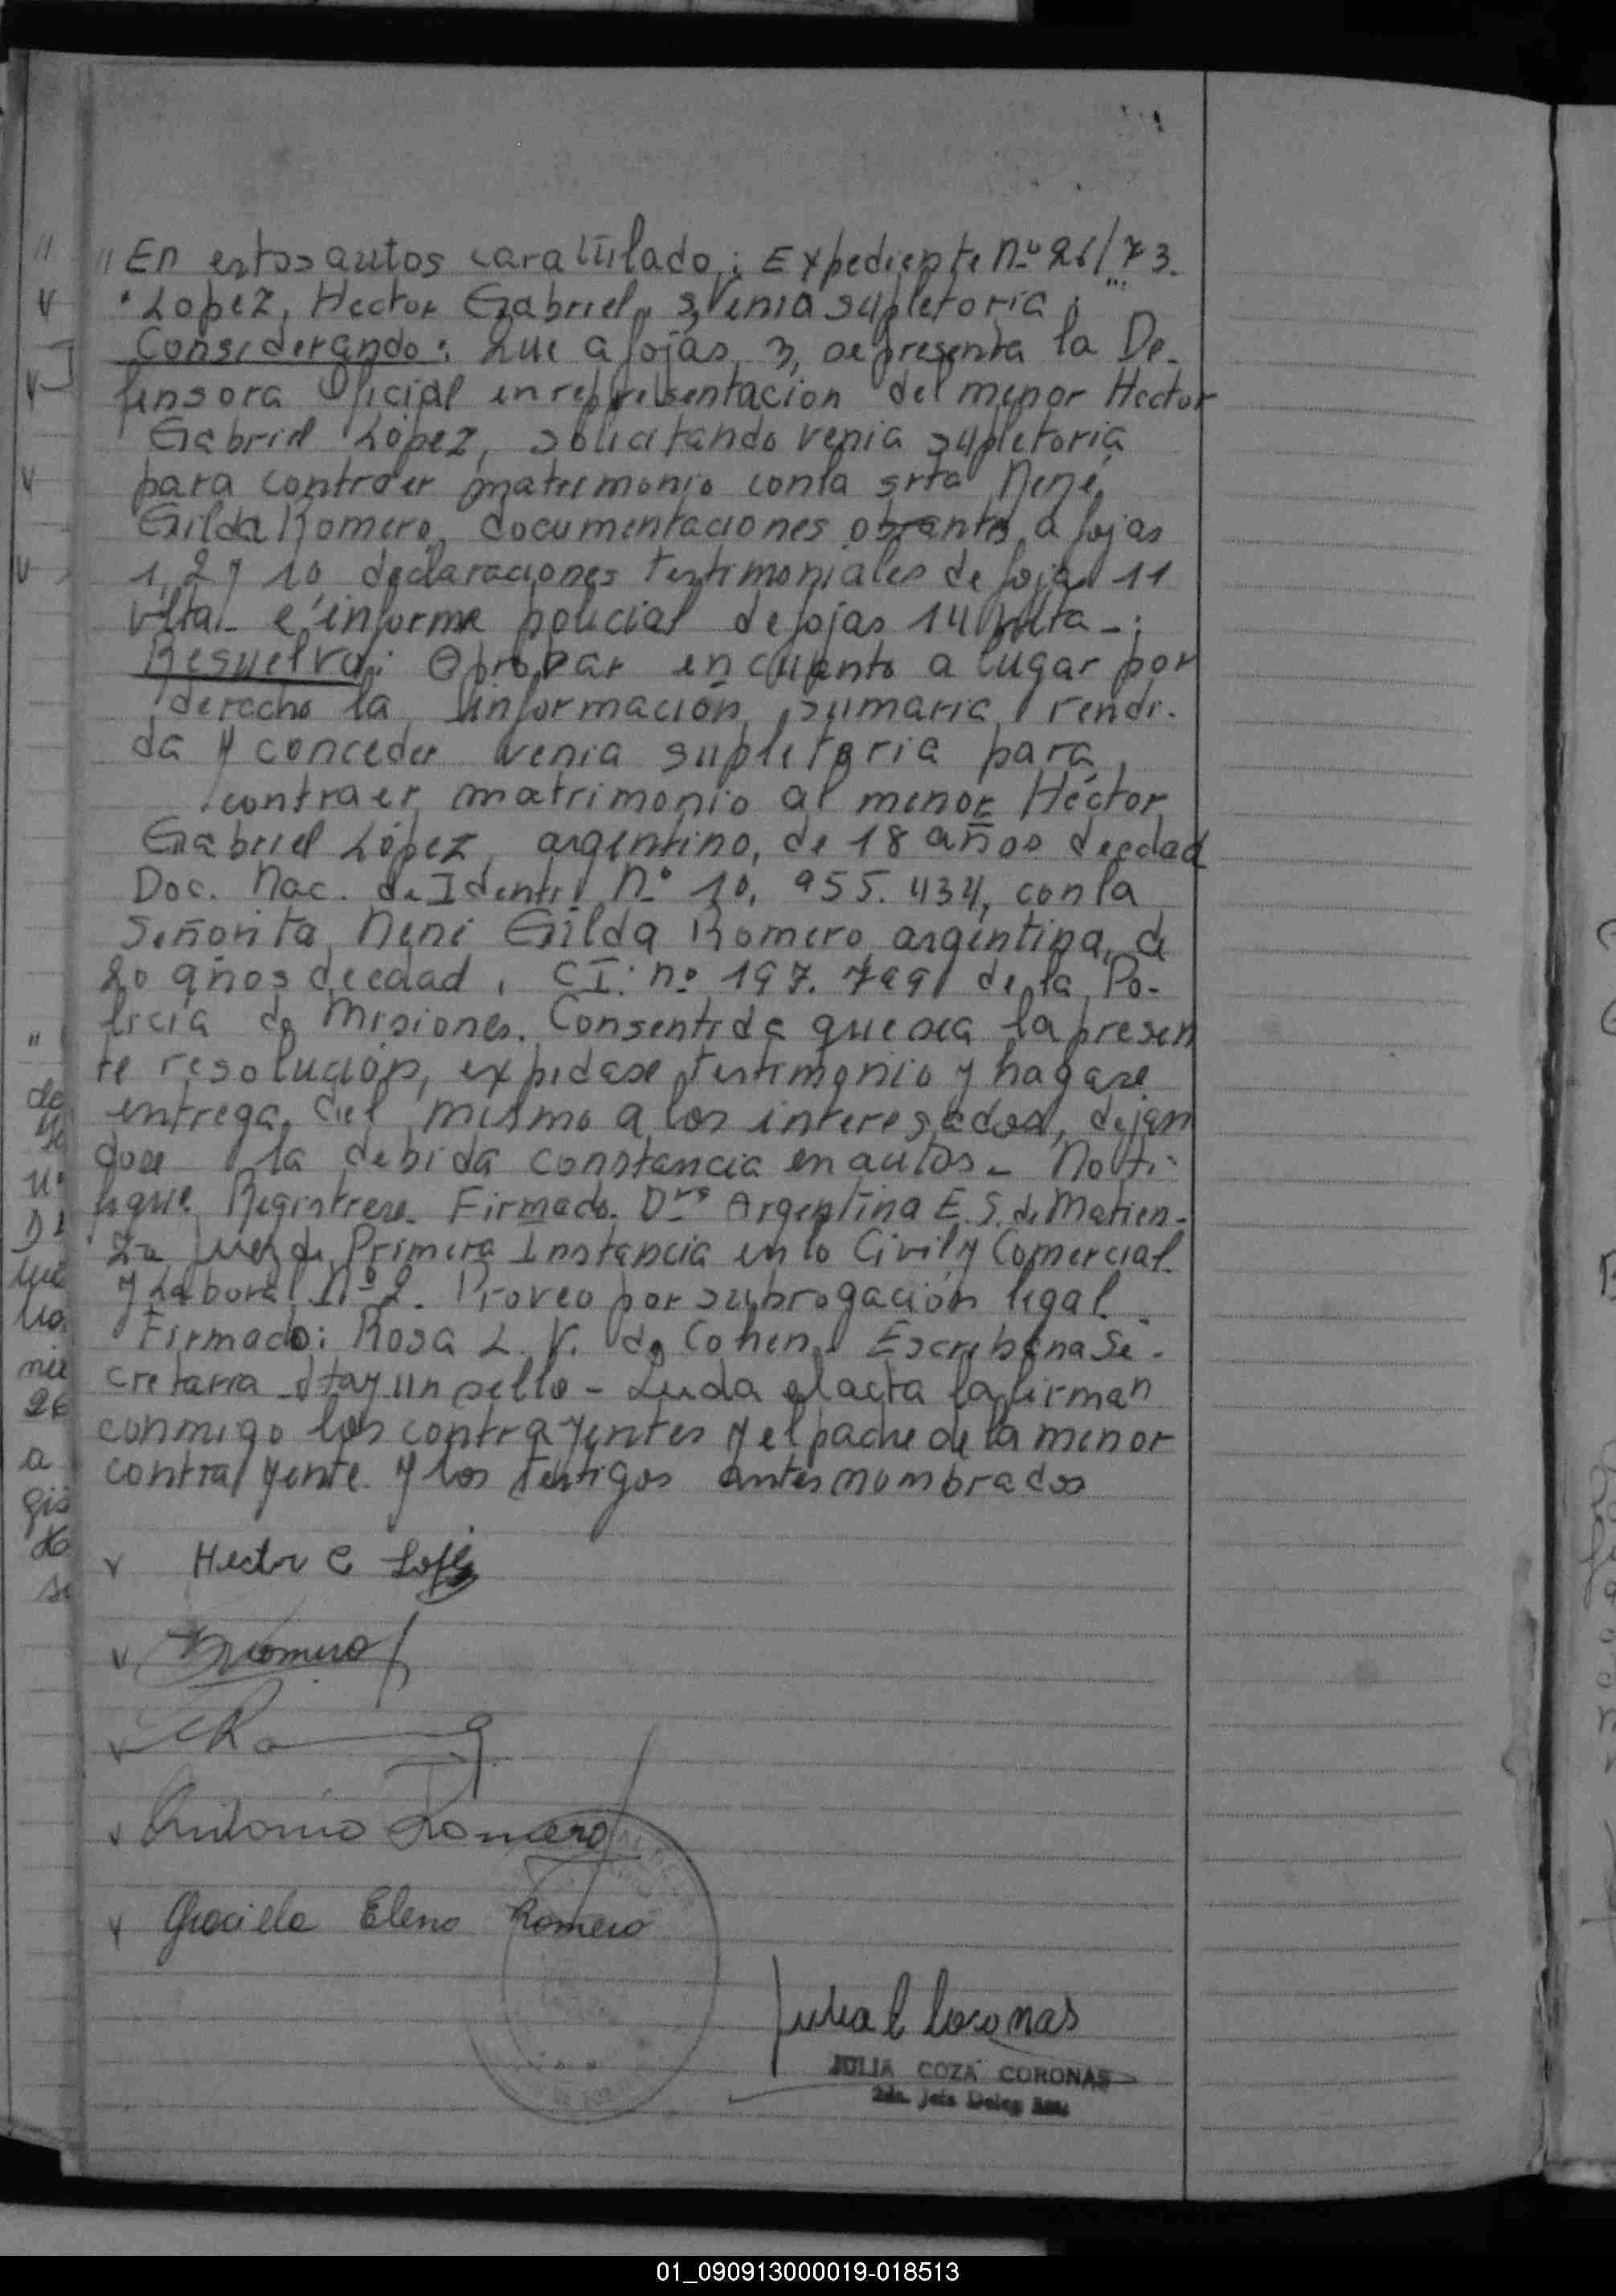 "En estos autos caratúlado: Expediente n.º 26/73.
"Lopez, Hector Gabriel, s/Venia supletoria";
Considerando: Que a fojas 3, se presenta la De-
fensora Oficial en representacion del menor Hector
Gabriel López, solicitando venia supletoria
para contraer matrimonio con la srta Nené
Gilda Romero, documentaciones obrantes a fojas
1, 2 y 10 declaraciones testimoniales de fojas 11
vlta- e informe policial de fojas 14 vulta-;
Resuelvo: Aprobar en cuanto a lugar por
derecho la información sumaria rendi-
da y conceder venia supletoria para
contraer matrimonio al menor Héctor
Gabriel López, argentino, de 18 años de edad
Doc. Nac. de Identi. Nº 10.955.434, con la
Señorita Nené Gilda Romero argentina, de
20 años de edad, CI: nº 197.799 de la Po-
licia de Misiones. Consentida que sea la presen
te resolución, expidase testimonio y hagase
entrega del mismo a los interesados, dejan
dose la debida constancia en autos- Noti-
fique Registrese. Firmado. Dra Argentina E. S. de Matien-
zo Juez de Primera Instancia en lo Civil y Comercial
y Laboral Nº 2. Proveo por subrogación legal.
Firmado: Rosa L. V. de Cohen. Escribana Se-
cretaria - Hay un sello - Leida el acta la firman
conmigo los contrayentes y el padre de la menor
contrayente y los testigos antes nombrados
Hector G Lopez
Romero
Antonio Romero
Graciela Elena Romero
Julia C Coronas
JULIA COZA CORONAS
01_090913000019-018513